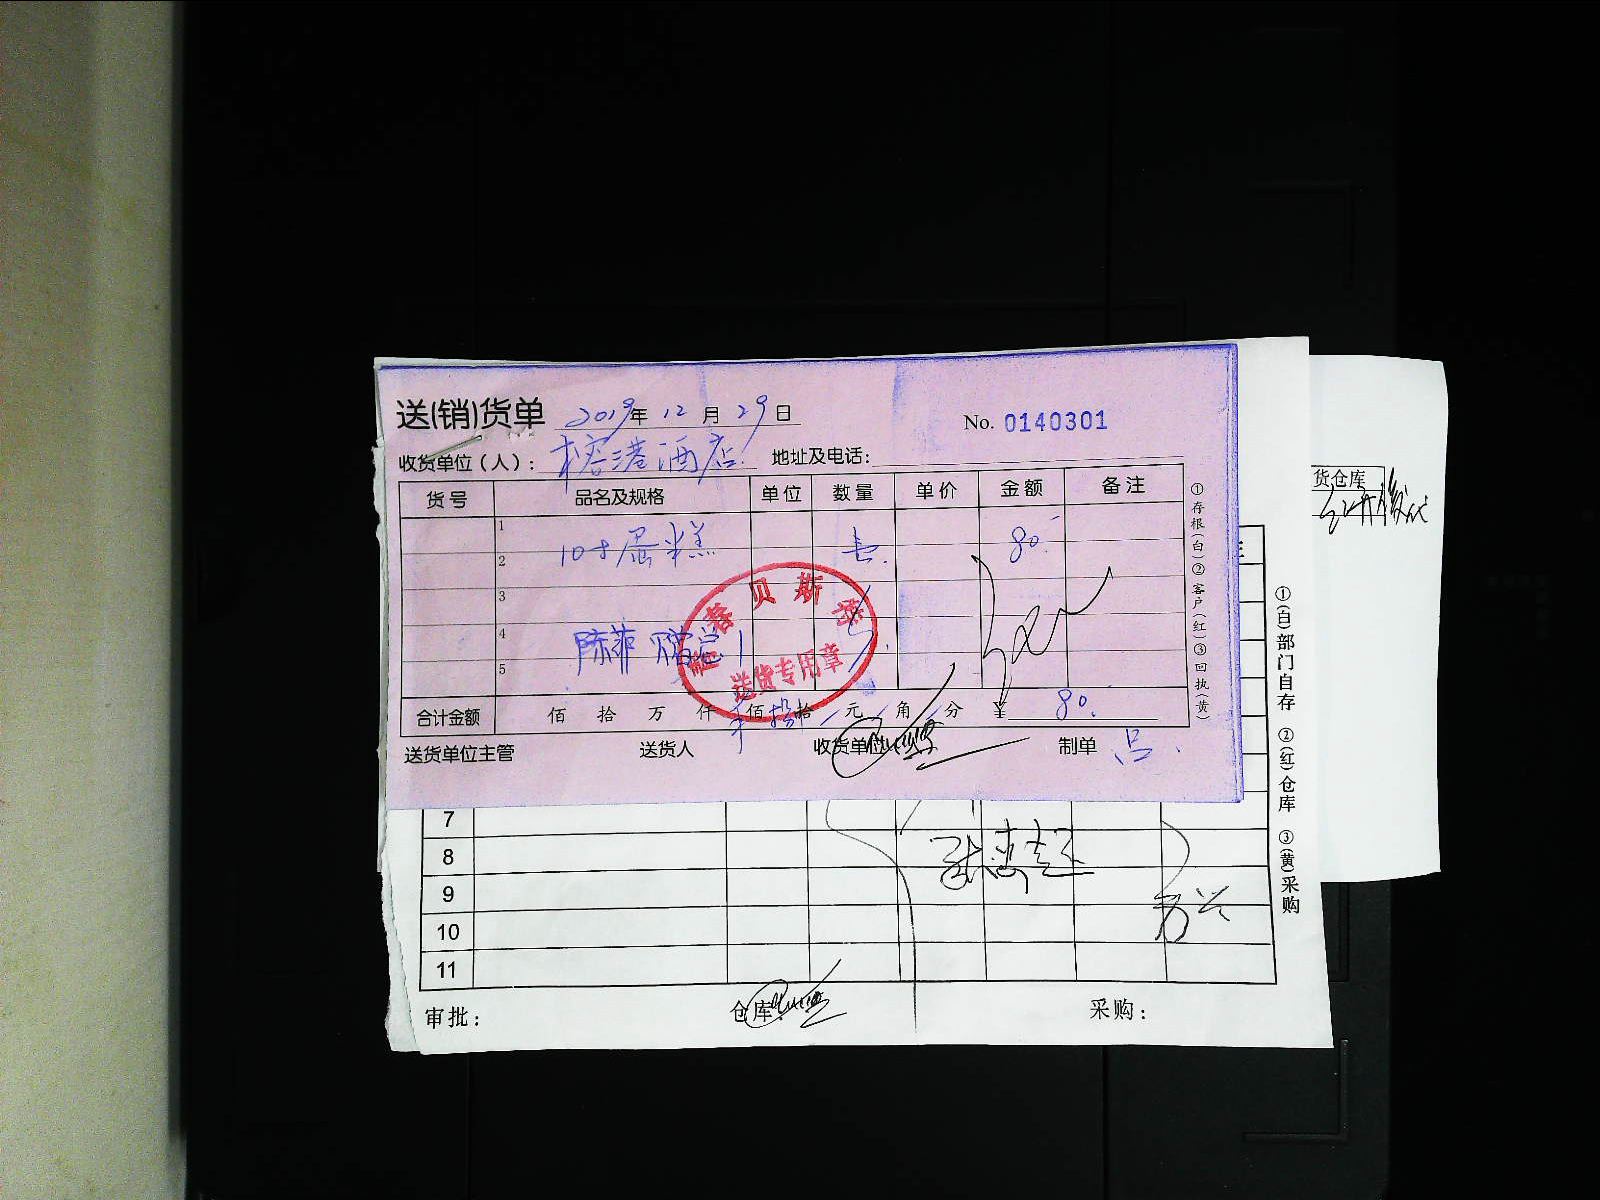 送(销)货单 2019年 12月 29日 No. 0140301
收货单位（人）：榕港酒店 地址及电话：
货号 品名及规格 单位 数量 单价 金额 备注
1
2 10寸蛋糕 80.
3
4
5
贝斯
送货专用章
合计金额 佰 拾 万 仟 佰 拾 元 角 分 ￥ 80.
送货单位主管 送货人 收货单位 制单 吕
①存根(白)②客户(红)③回执(黄)
货仓库
7
8
9
10
11
审批： 仓库 采购：
①(白)部门自存 ②(红)仓库 ③(黄)采购